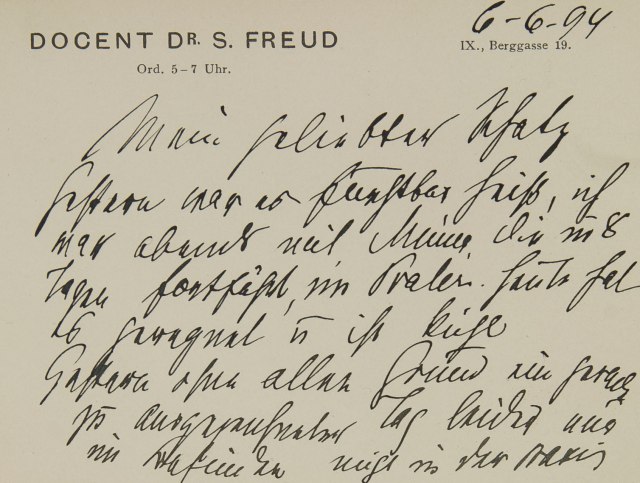 6-6-94
DOCENT DR. S. FREUD
IX., Berggasse 19.
Ord. 5–7 Uhr.
Mein geliebter Schatz
Gestern war es furchtbar heiß, ich
war abends mit Minna die in 8
Tagen fortfährt, im Prater. Heute hat
es geregnet u ist kühl
Gestern ohne allen Grund ein geradezu
ausgezeichneter Tag leider nur
im Befinden nicht in der Praxis